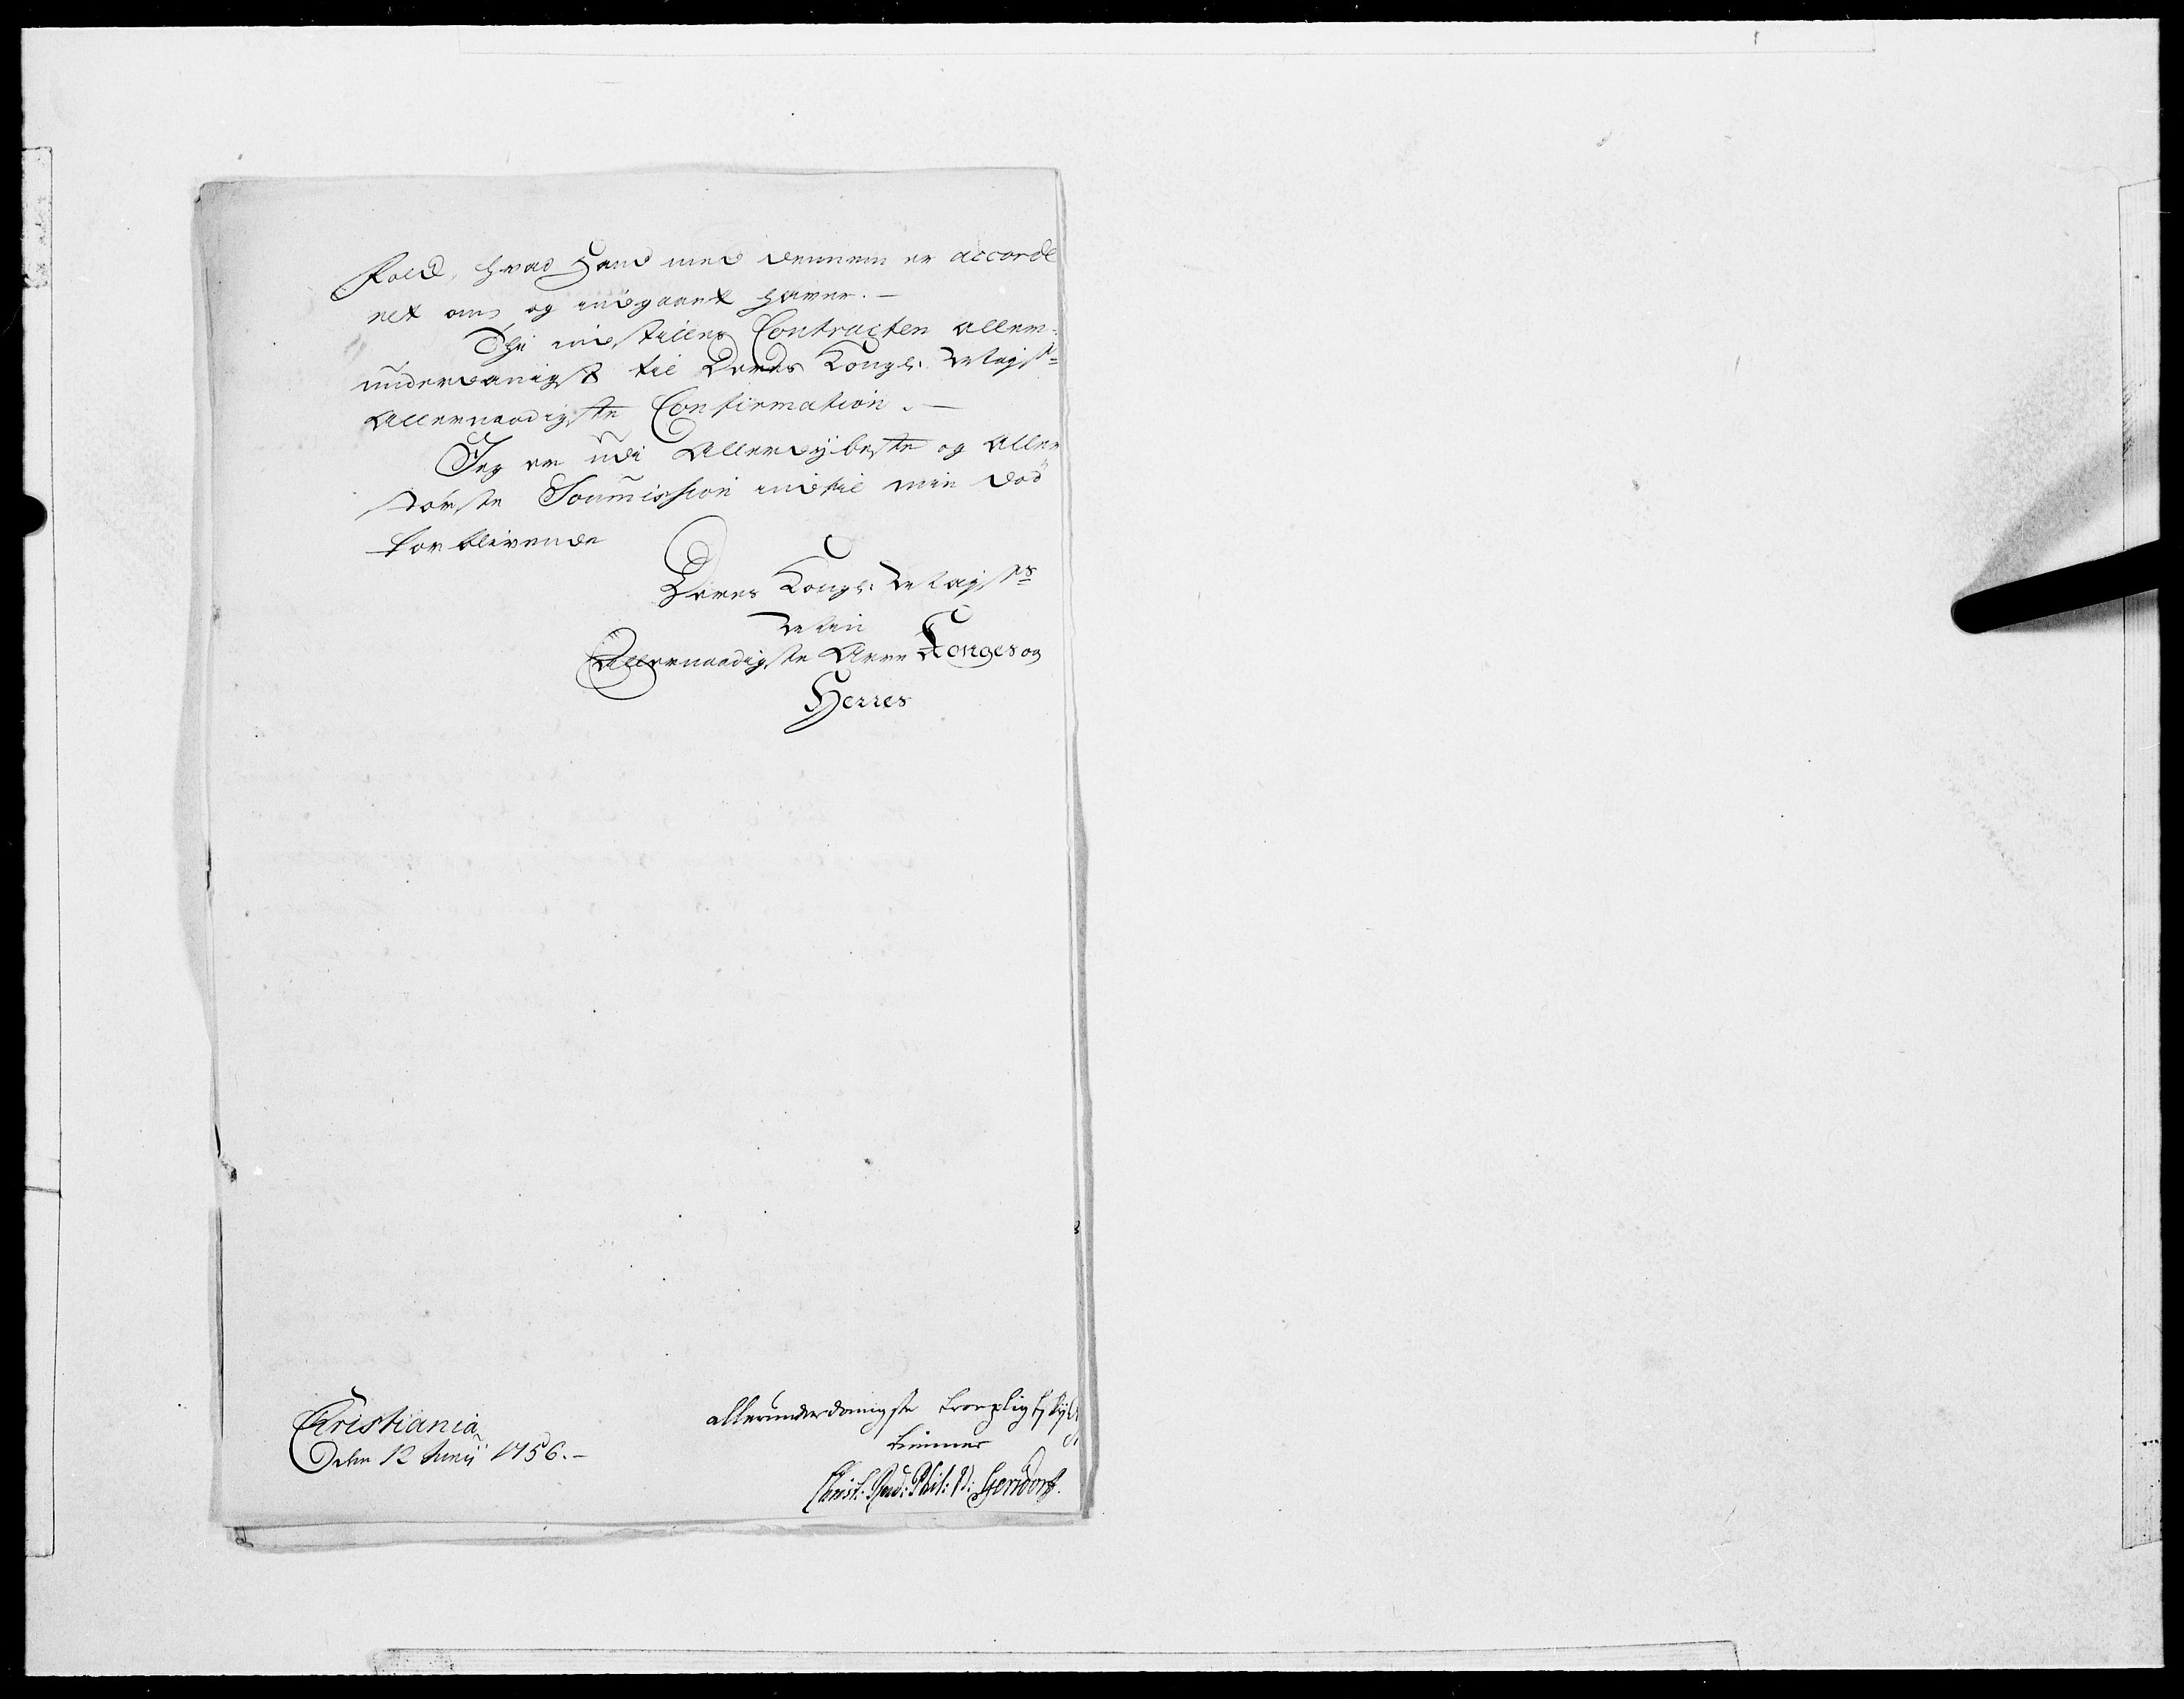 hold, hvad Hand med dennem er accorde
ret om, og indgaaet haver.-
Thi indstilles Contracten aller-
underdanigst til Deres Kongl: Mayst=
Allernaadigste Confirmation.-
Jeg er udi Allerdybeste og Aller
største Soumission indtil min död
forblivende
Deres Kongl: Mayst:s
Min
Allernaadigste Arve Konges og
Herres
Christiania
Den 12 Junij 1756.-
allerunderdanigste troepligtskyld
tienner
Christ: Rud: Phil: V: Gersdorff.